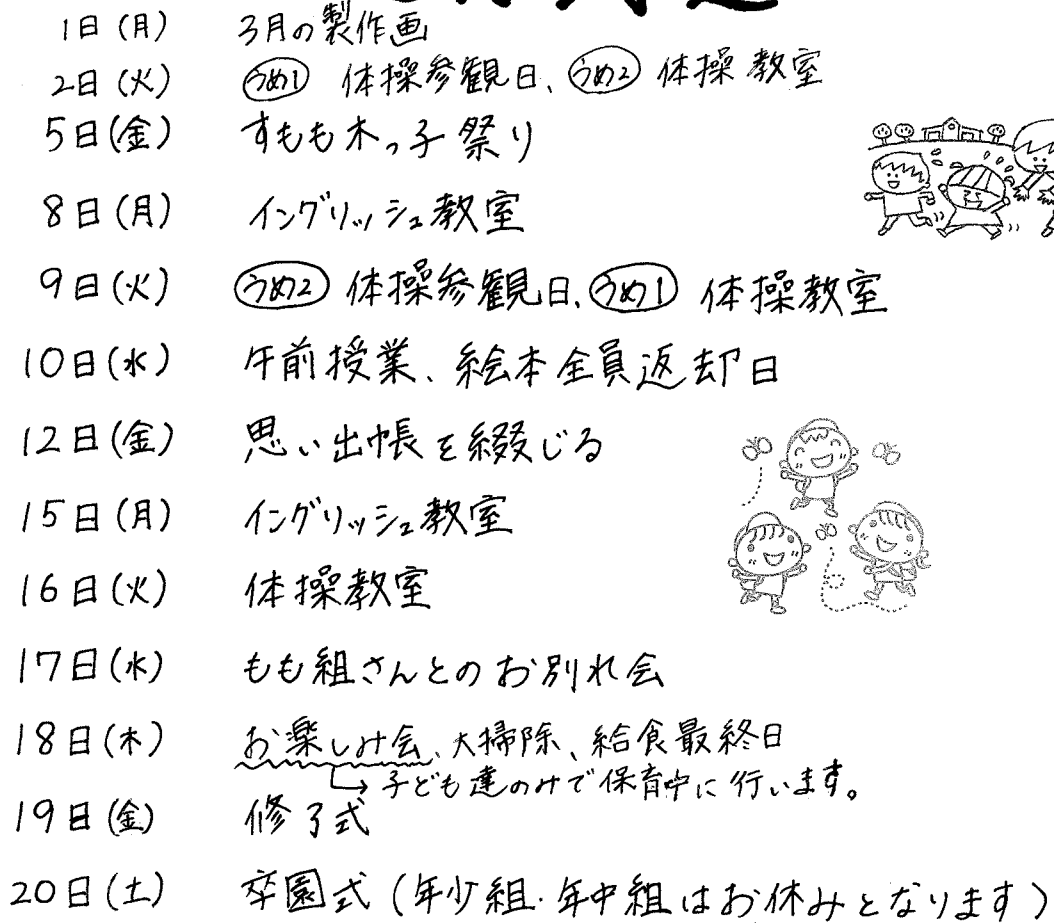 1日(月) 3月の製作画
2日(火) うめ1 体操参観日、うめ2 体操教室
5日(金) すもも木っ子祭り
8日(月) イングリッシュ教室
9日(火) うめ2 体操参観日、うめ1 体操教室
10日(水) 午前授業、絵本全員返却日
12日(金) 思い出帳を綴じる
15日(月) イングリッシュ教室
16日(火) 体操教室
17日(水) もも組さんとのお別れ会
18日(木) お楽しみ会、大掃除、給食最終日
→子ども達のみで保育中に行います。
19日(金) 修了式
20日(土) 卒園式(年少組・年中組はお休みとなります)